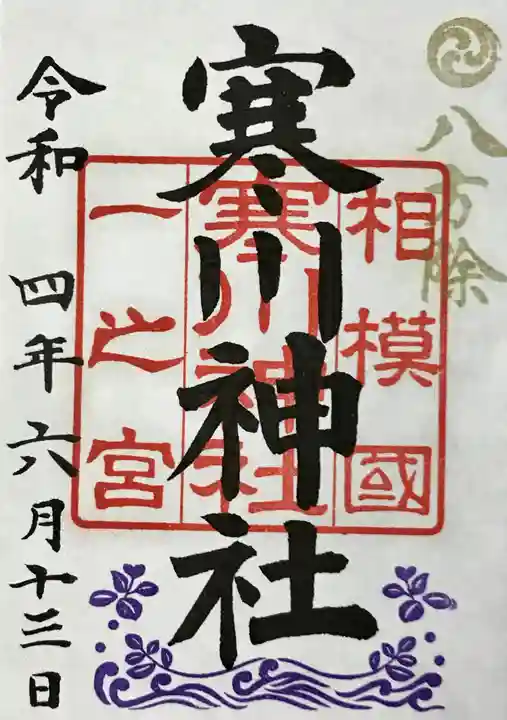 八方除
相模國
寒川神社
一之宮
寒川神社
令和 四年 六月十三日